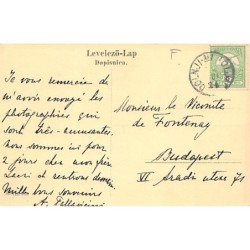 Levelező-Lap
Dopisnica.
F
Je vous remercie de
m'avoir envoyé les
photographies qui
sont très-amusantes,
nous sommes ici pour
2 jours chez
et rentrons demain
Mille bons souvenirs
A. Pallavicini
Monsieur le Vicomte
de Fontenay
Budapest
VI Aradi utcza 71